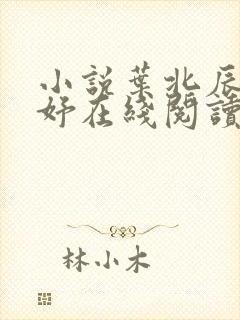 小説葉北辰
妤在綫閱讀
林小木